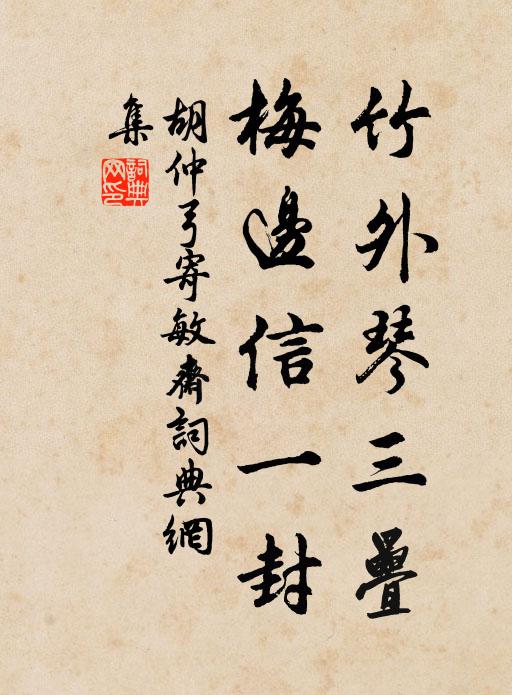 竹外琴三疊
梅邊信一封
胡仲弓寄敏齋詞典網
集
詞典
网印